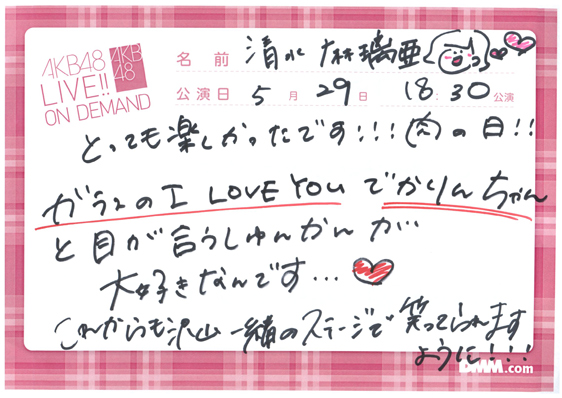 AKB48
LIVE!!
ON DEMAND
AKB
48
名前 清水 麻璃亜
公演日 5月29日 18:30公演
とっても楽しかったです!!!肉の日!!
ガラスの I LOVE YOU でかりんちゃん
と目が合うしゅんかんが…
大好きなんです…
これからも沢山一緒のステージで笑ってられます
ように!!!
DMM.com